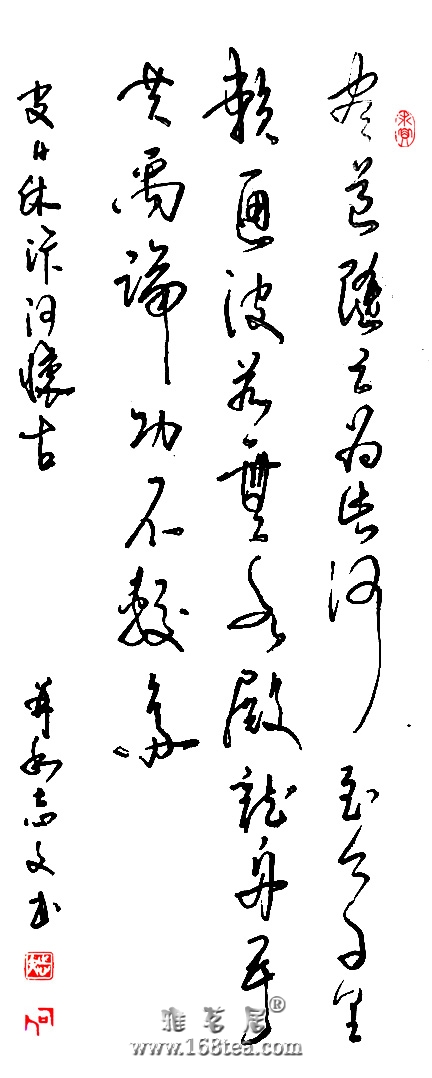 尽道隋亡为此河至今千里
赖通波若無水殿龍舟事
共禹論功不較多
皮日休汴河懷古
志文书
雅茗居®
www.168tea.com